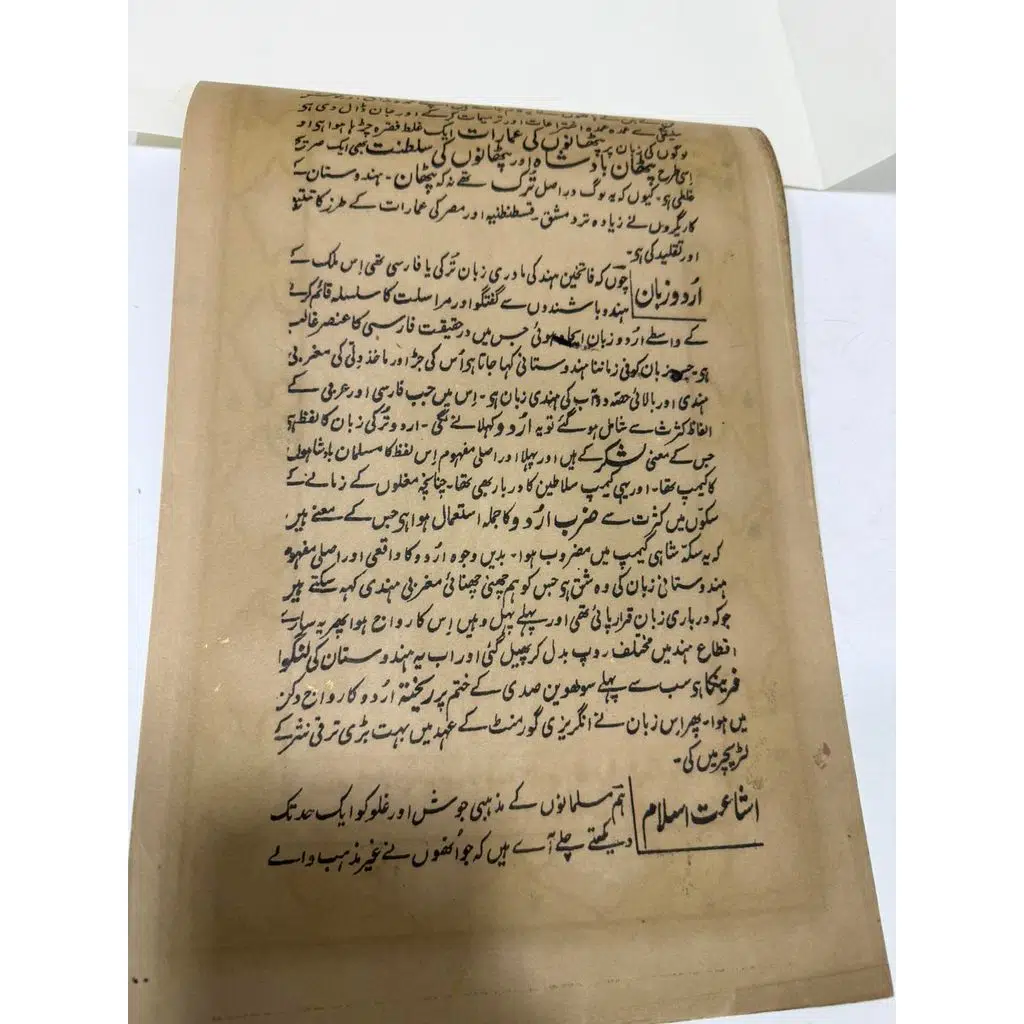 سلیقگی سے عمدہ عمدہ اختراعات اور ترمیمات کرکے اور جان ڈال دی ہی
لوگوں کی زبان پر پٹھانوں کی عمارات ایک غلط فقرہ چڑہا ہوا ہی او
اِسی طرح پٹھان بادشاہ اور پٹھانوں کی سلطنت بھی ایک صریح
غلطی ہی۔ کیوں کہ یہ لوگ دراصل تُرک تھے نہ کہ پٹھان۔ ہندوستان کے
کاریگروں نے زیادہ تر دمشق۔ قسطنطنیہ اور مصر کی عمارات کے طرز کا تتبع
اور تقلید کی ہی۔
اُردو زبان
چوں کہ فاتحین ہند کی مادری زبان تُرکی یا فارسی تھی اِس ملک کے
ہندو باشندوں سے گفتگو اور مراسلت کا سلسلہ قائم کرنے
کے واسطے اُردو زبان ایجاد ہوئی جس میں درحقیقت فارسی کا عنصر غالب
ہی۔ جس زبان کو فی زماننا ہندوستانی کہا جاتا ہی اُس کی جڑ اور ماخذ دِلّی کی مغربی
ہندی اور بالائی حصّہ دوآب کی ہندی زبان ہی۔ اِس میں جب فارسی اور عربی کے
الفاظ کثرت سے شامل ہو گئے تو یہ اُردو کہلانے لگی۔ اردو تُرکی زبان کا لفظ ہی
جس کے معنی لشکر کے ہیں اور پہلا اور اصلی مفہوم اِس لفظ کا مسلمان بادشاہوں
کا کیمپ تھا۔ اور یہی کیمپ سلاطین کا دربار بھی تھا۔ چنانچہ مغلوں کے زمانے کے
سکّوں میں کثرت سے ضرب اُردو کا جملہ استعمال ہوا ہی جس کے معنے ہیں
کہ یہ سکّہ شاہی کیمپ میں مضروب ہوا۔ بدیں وجوہ اُردو کا واقعی اور اصلی مفہوم
ہندوستانی زبان کی وہ شق ہی جس کو ہم چھنی چھنائی مغربی ہندی کہہ سکتے ہیں
جو کہ درباری زبان قرار پائی تھی اور پہلے پہل وہیں اِس کا رواج ہوا پھر یہ سارے
اقطاع ہند میں مختلف روپ بدل کر پھیل گئی اور اب یہ ہندوستان کی لنگوا
فرینکا ہی سب سے پہلے سولھویں صدی کے ختم پر ریختۂ اُردو کا رواج دکن
میں ہوا۔ پھر اِس زبان نے انگریزی گورمنٹ کے عہد میں بہت بڑی ترقی نثر کے
لٹریچر میں کی۔
اشاعت اسلام
ہم مسلمانوں کے مذہبی جوش اور غلو کو ایک حد تک
دیکھتے چلے آے ہیں کہ جو اُنھوں نے غیر مذہب والے